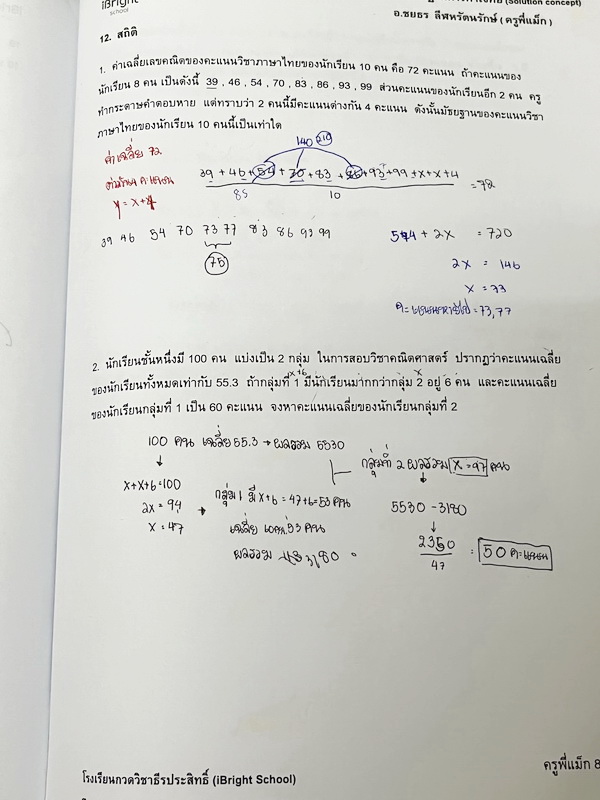 iBright
school
(Solution concept)
อ.ชยธร ลีฬหรัตนรักษ์ ( ครูพี่แม็ก )
12. สถิติ
1. ค่าเฉลี่ยเลขคณิตของคะแนนวิชาภาษาไทยของนักเรียน 10 คน คือ 72 คะแนน ถ้าคะแนนของ
นักเรียน 8 คน เป็นดังนี้ 39 , 46 , 54 , 70 , 83 , 86 , 93 , 99 ส่วนคะแนนของนักเรียนอีก 2 คน ครู
ทำกระดาษคำตอบหาย แต่ทราบว่า 2 คนนี้มีคะแนนต่างกัน 4 คะแนน ดังนั้นมัธยฐานของคะแนนวิชา
ภาษาไทยของนักเรียน 10 คนนี้เป็นเท่าใด
140 210
ค่าเฉลี่ย 72
39 + 46 + 54 + 70 + 83 + 86 + 93 + 99 + x + x + 4
= 72
85
10
y = x + 4
39 46 54 70 73 77 83 86 93 99
75
574 + 2x = 720
2x = 146
x = 73
= 73,77
2. นักเรียนชั้นหนึ่งมี 100 คน แบ่งเป็น 2 กลุ่ม ในการสอบวิชาคณิตศาสตร์ ปรากฏว่าคะแนนเฉลี่ย
x+6 x
ของนักเรียนทั้งหมดเท่ากับ 55.3 ถ้ากลุ่มที่ 1 มีนักเรียนมากกว่ากลุ่ม 2 อยู่ 6 คน และคะแนนเฉลี่ย
ของนักเรียนกลุ่มที่ 1 เป็น 60 คะแนน จงหาคะแนนเฉลี่ยของนักเรียนกลุ่มที่ 2
100 คน เฉลี่ย 55.3 → ผลรวม 5530
กลุ่มที่ 2 ผลรวม x = 47 คน
x + x + 6 = 100
2x = 94
x = 47
กลุ่ม 1 มี x+6 = 47+6 = 53 คน
เฉลี่ย 53 คน
ผลรวม 3180
5530 - 3180
2350
47
= 50 คะแนน
โรงเรียนกวดวิชาธีรประสิทธิ์ (iBright School)
ครูพี่แม็ก 8